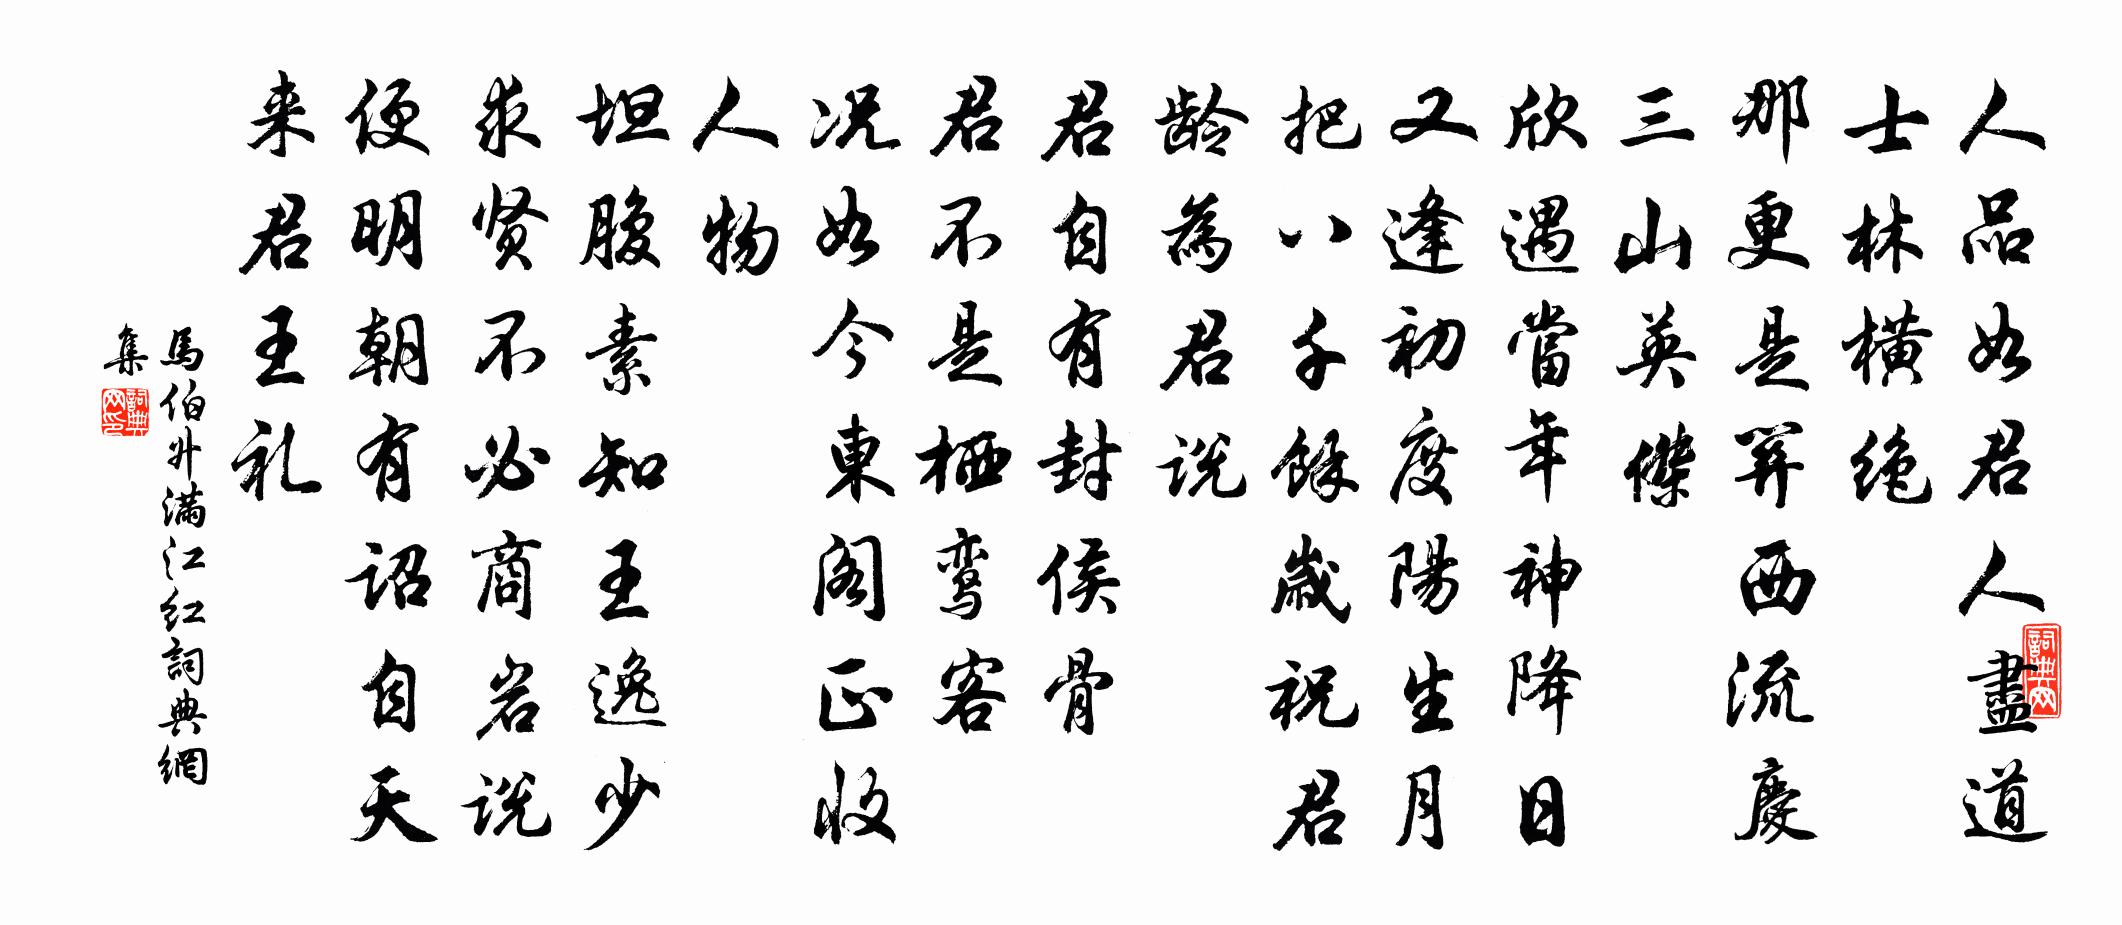 人品如君人盡道
士林橫绝
那更是笄西流慶
三山英傑
欣遇當年神降日
又逢初度陽生月
把八千餘歲祝君
龄為君说
君自有封侯骨
君不是栖鸾客
况如今東阁正收
人物
坦腹素知王逸少
求贤不必商岩说
便明朝有诏自天
来君王礼
馬伯升满江红詞典網
集
詞典网
詞典网印